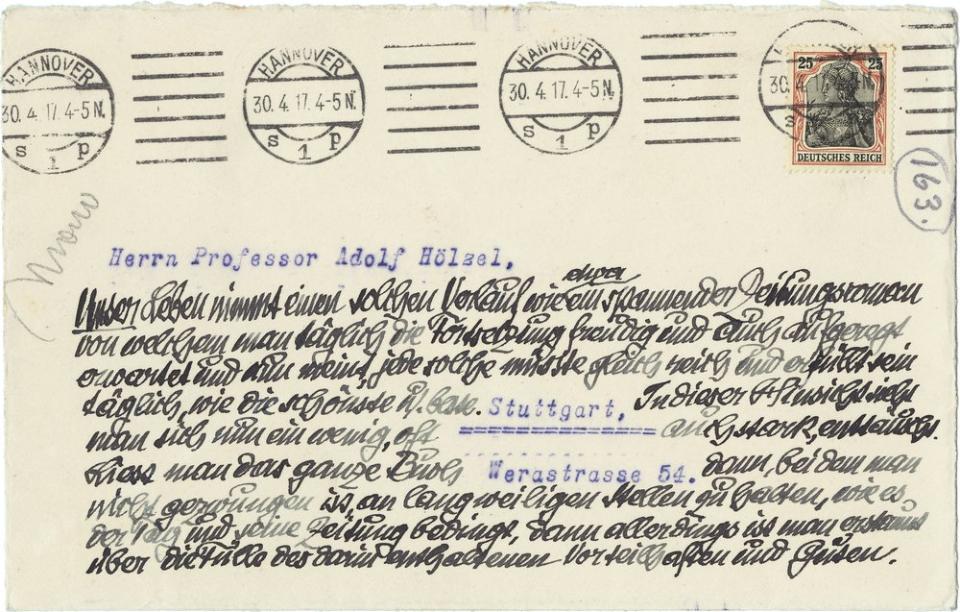 HANNOVER HANNOVER HANNOVER
30.4.17.4-5N. 30.4.17.4-5N. 30.4.17.4-5N. 30.4.17. N.
s 1 p s 1 p s 1 p s
25 25
DEUTSCHES REICH
163.
Herrn Professor Adolf Hölzel,
etwa
Unser Leben nimmt einen solchen Verlauf wie ein spannender Zeitungsroman
von welchem man täglich die Fortsetzung freudig und auch aufgeregt
erwartet und nun meint, jede solche müsste gleich reich und erfüllt sein
täglich, wie die schönste u. Stuttgart, In dieser Hinsicht sieht
man sich nun ein wenig, oft auch stark, enttäuscht.
Liess man das ganze Buch Werastrasse 54. dann, bei dem man
nicht gezwungen ist, an langweiligen Stellen zu halten, wie es
der Tag und seine Zeitung bedingt, dann allerdings ist man erstaunt
über die Fülle des darin enthaltenen Vorteilhaften und Guten.